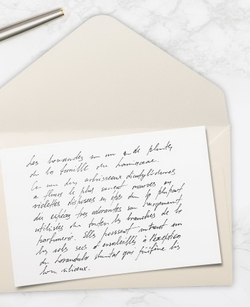 Les lavandes de plantes
de la famille des
Ce sont des arbrisseaux dicotylédones
à fleurs le plus souvent mauves ou
violettes disposées en épis dont la plupart
des espèces très odorantes sont largement
utilisées dans toutes les branches de la
parfumerie. Elles poussent surtout sur
les sols secs ensoleillés à l'exception
de qui préfère les
sols siliceux.